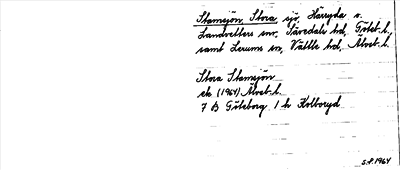 Stamsjön, Stora sjö, Härryda o.
Landvetters snr, Sävedals hd, Göteb. l.,
samt Lerums sn, Vättle hd, Älvsb. l.
Stora Stamsjön
ek (1964) Älvsb. l.
7 B Göteborg 1 h Kolboryd
S.P. 1964